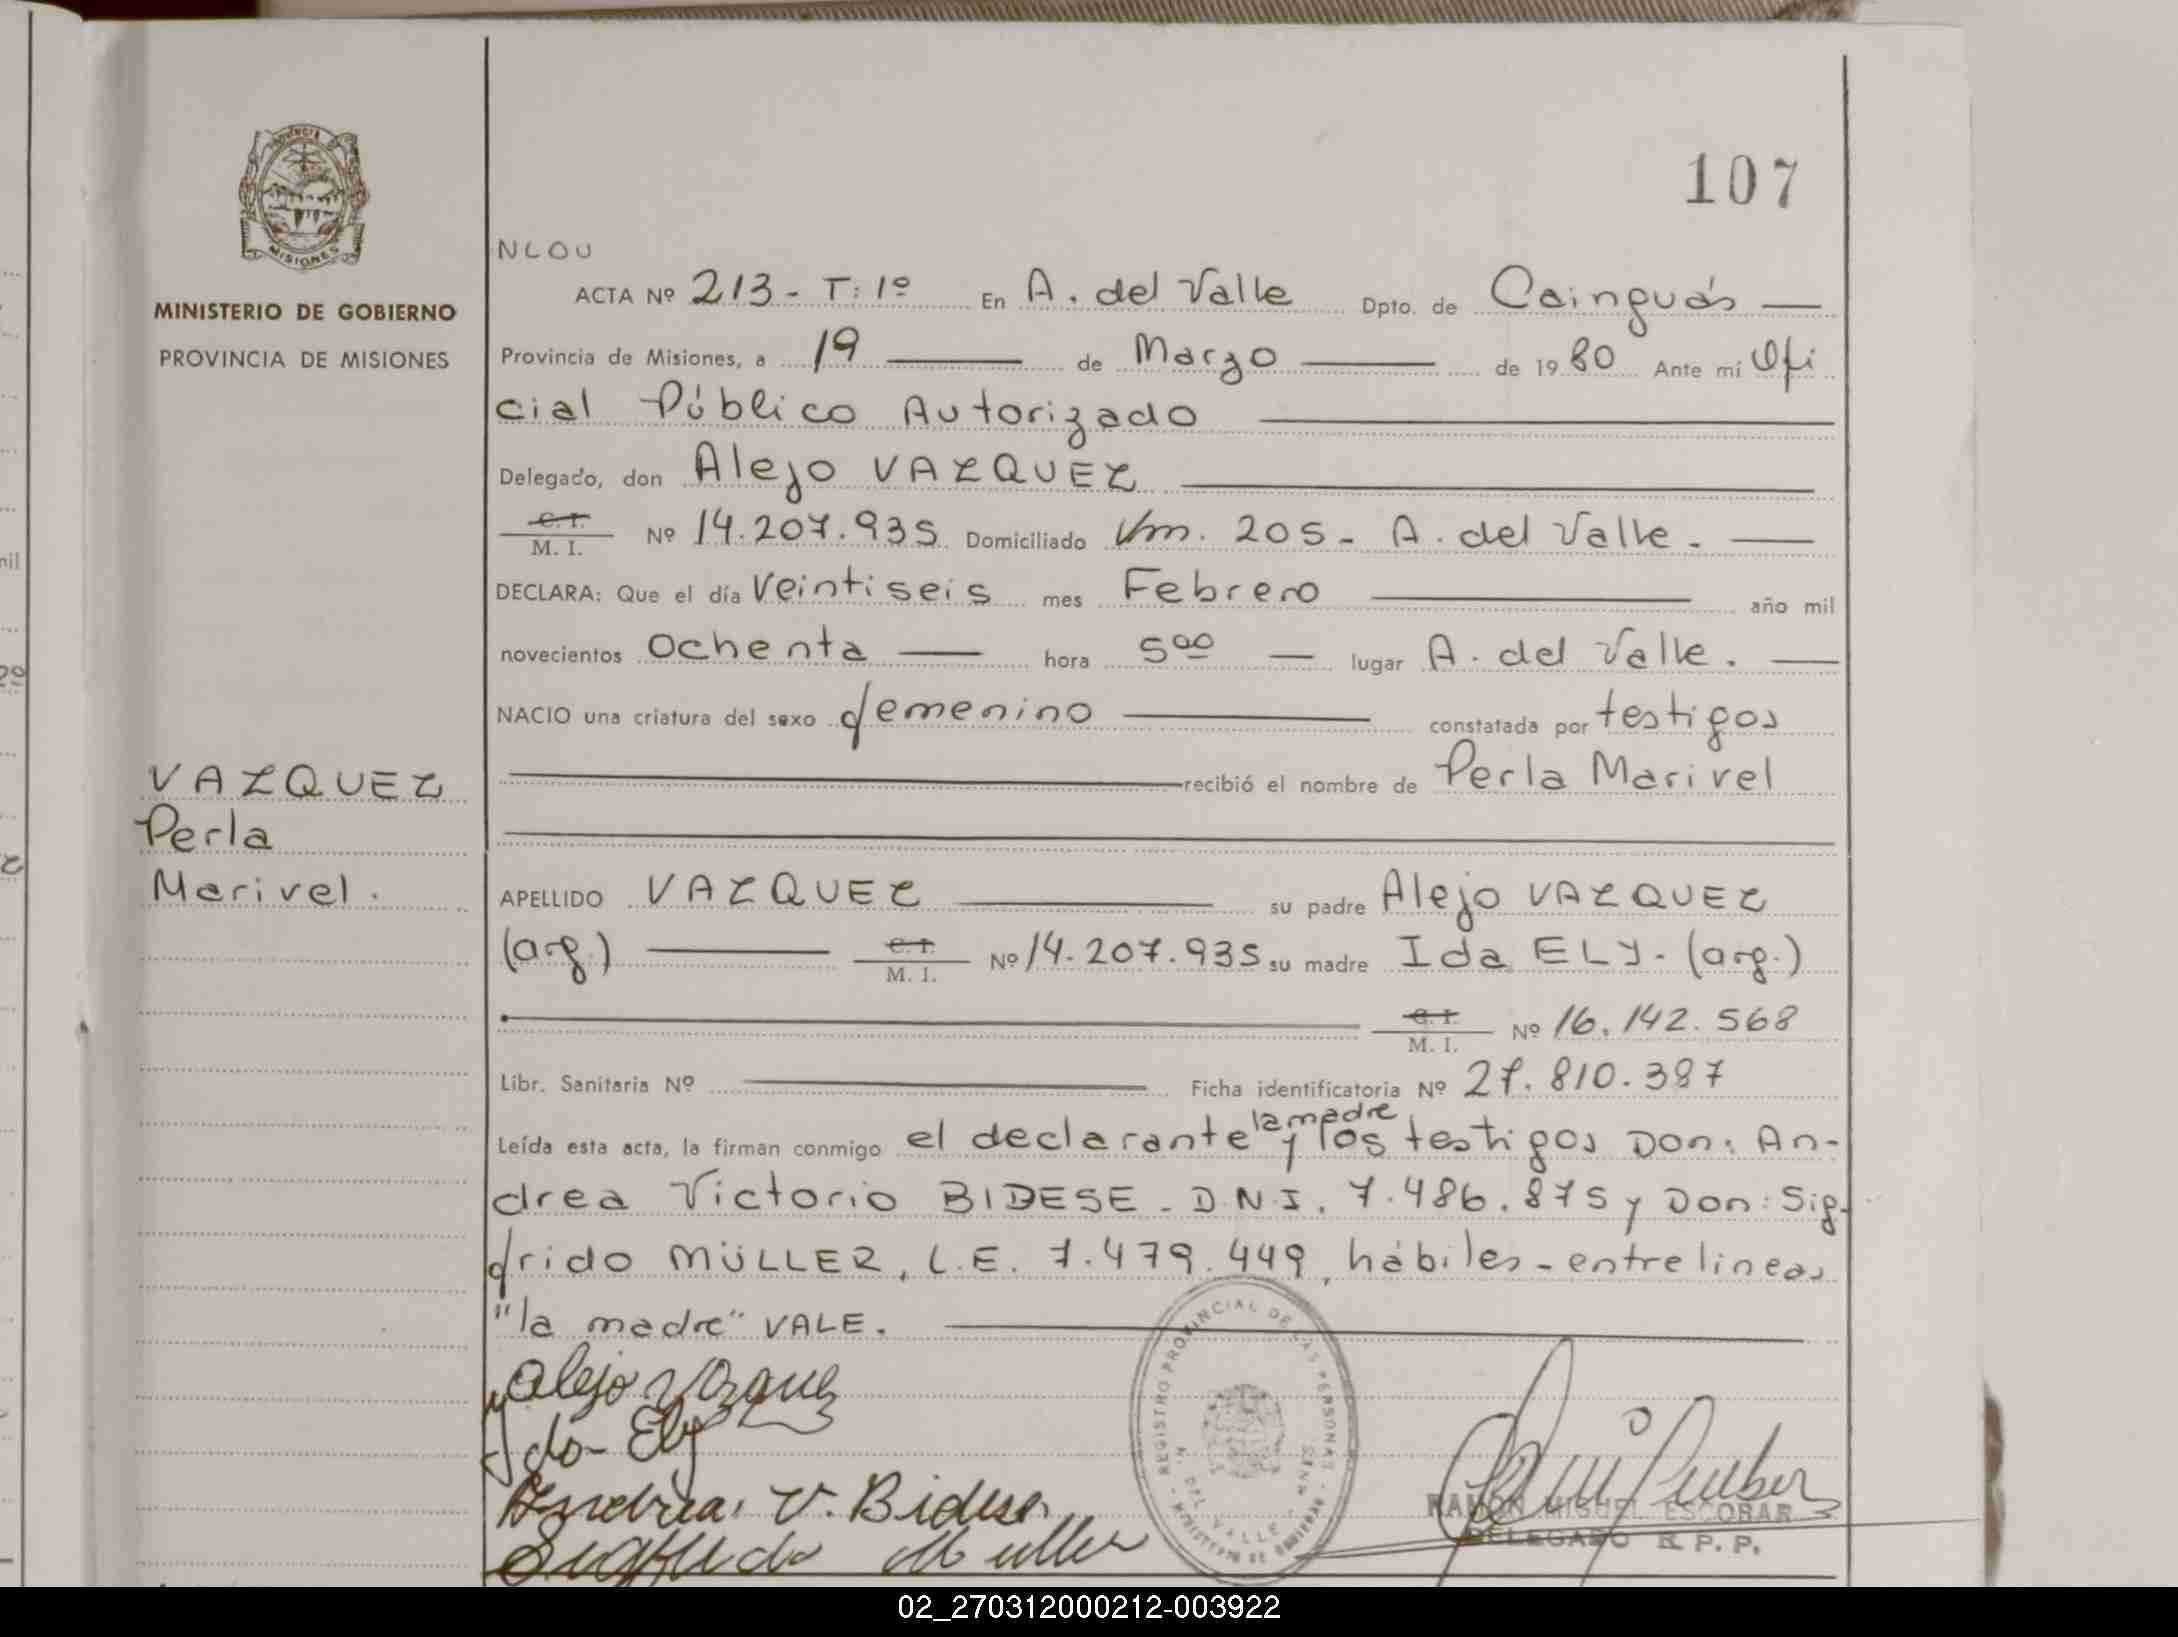 PROVINCIA
MISIONES
MINISTERIO DE GOBIERNO
PROVINCIA DE MISIONES
VAZQUEZ
Perla
Marivel.
107
NLOU
ACTA Nº 213 - T: 1º En A. del Valle Dpto. de Cainguás
Provincia de Misiones, a 19 de Marzo de 1980 Ante mí Ofi
cial Público Autorizado
Delegado, don Alejo VAZQUEZ
C. I. M. I. Nº 14.207.935 Domiciliado Km. 205 - A. del Valle.
DECLARA: Que el día Veintiseis mes Febrero año mil
novecientos Ochenta hora 5 00 lugar A. del Valle.
NACIO una criatura del sexo femenino constatada por testigos
recibió el nombre de Perla Marivel
APELLIDO VAZQUEZ su padre Alejo VAZQUEZ
(arg.) C. I. M. I. Nº 14.207.935 su madre Ida ELY - (arg.)
C. I. M. I. Nº 16.142.568
Libr. Sanitaria Nº Ficha identificatoria Nº 27.810.387
la madre
Leída esta acta, la firman conmigo el declarante y los testigos Don: An-
drea Victorio BIDESE - D.N.I. 7.486.875 y Don: Sig-
frido MÜLLER, L.E. 7.479.449, hábiles - entre lineas
"la madre" VALE.
Alejo Vazquez
Ida Ely
Andrea V. Bidese
Sigfrido Muller
REGISTRO PROVINCIAL DE LAS PERSONAS
DEL VALLE
MINISTERIO DE GOBIERNO
RAMON MIGUEL ESCOBAR
DELEGADO R. P. P.
02_270312000212-003922